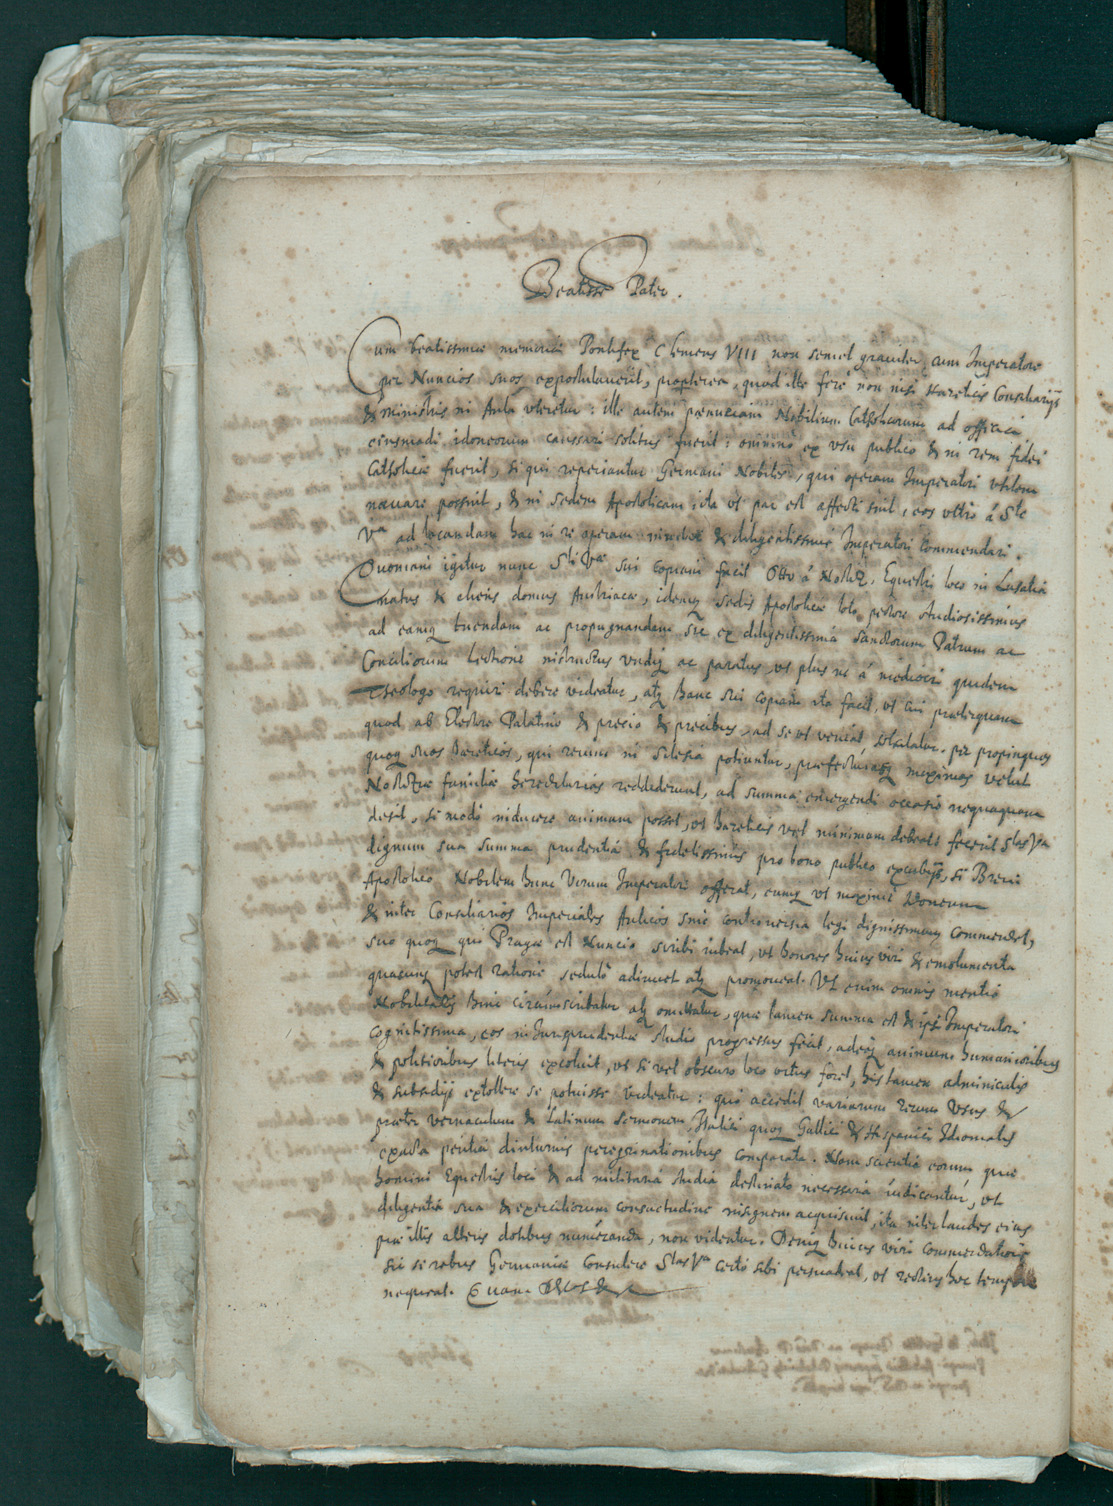 Beatisse Pater.
Cum beatissimae memoriae Pontifex Clemens VIII non semel graviter cum Imperatore
per Nuncios suos expostulauerit, propterea, quod ille ferè non nisi haereticis Consiliarijs
& ministris in Aula vteretur: ille autem paenuriam Nobilium Catholicorum ad officia
eiusmodi idoneorum caussari solitus fuerit: omninò ex vsu publico & in rem fidei
Catholicae fuerit, si qui reperiantur Germani Nobiles, qui operam Imperatori vtilem
nauare possint, & in sedem Apostolicam ita vt par est affecti sint, eos vltrò á Ste
Va ad locandam hac in re operam diligentissimè Imperatori commendari.
Quoniam igitur nunc Sti Vae sui copiam facit Otto á Nostiz, Equestri loco in Lusatia
natus & cliens domus Austriacae, idemq sedis Apostolicae toto pectore studiosissimus
ad eamq tuendam ac propugnandam sic ex diligentissima sanctorum Patrum ac
Conciliorum lectione instructus vndiq ac paratus, vt plus in á mediocri quidem
Theologo requiri debere videatur, atq hanc sui copiam ita facit, vt cui praeterquam
quod ab Electore Palatino & precio & precibus, ad se vt veniat, sollicitatur, per propinquos
quoq suos haereticos, qui rerum in Silesia potiuntur, praefecturasq maximas velut
Nostizae familiae hereditarias reddiderunt, ad summa emergendi occasio nequaquam
desit, si modò inducere animum posset, vt haereticis vel minimum debeat: fecerit Stas Va
dignum sua summa prudentia & fidelissimis pro bono publico excubijs, si Breui
Apostolico Nobilem hunc Virum Imperatori offerat, eumq vt maximè idoneum
& inter Consiliarios Imperiales Aulicos sine controuersia legi dignissimum commendet,
suo quoq qui Pragae est Nuncio scribi iubeat, vt honores huius viri & emolumenta
quacunq potest ratione sedulò adiuuet atq promoueat. Vt enim omnis mentio
Nobilitatis hinc circumscribatur atq omittatur, quae tamen summa est & ipsi Imperatori
cognitissima, eos in Iurisprudentiae studio progressus fecit, adeoq animum humanioribus
& politioribus literis excoluit, vt si vel obscuro loco ortus foret, his tamen adminiculis
& subsidijs extollere se potuisse videatur: quò accedit variarum rerum Vsus &
praeter vernaculum & Latinum sermonem, Italici quoq Gallici & Hispanici Idiomatis
exacta peritia diuturnis peregrinationibus comparata. Nam scientia eorum, quae
homini Equestris loci & ad militaria studia destinato necessaria iudicantur, vt
diligentia sua & exercitiorum consuetudine insignem acquisiuit, ita inter laudes eius
prae illis alteris dotibus numeranda, non videatur. Deniq huius viri commendatione
sic se rebus Germaniae consulere Stas Va certò sibi persuadeat, vt rectius hoc tempore
nequeat.